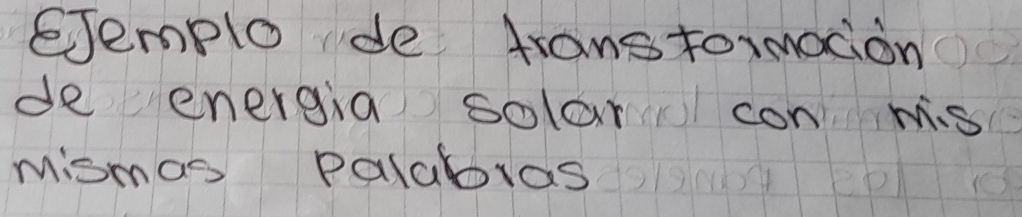 Ejemplo de transformación
de energia solar con mis
mismas palabras